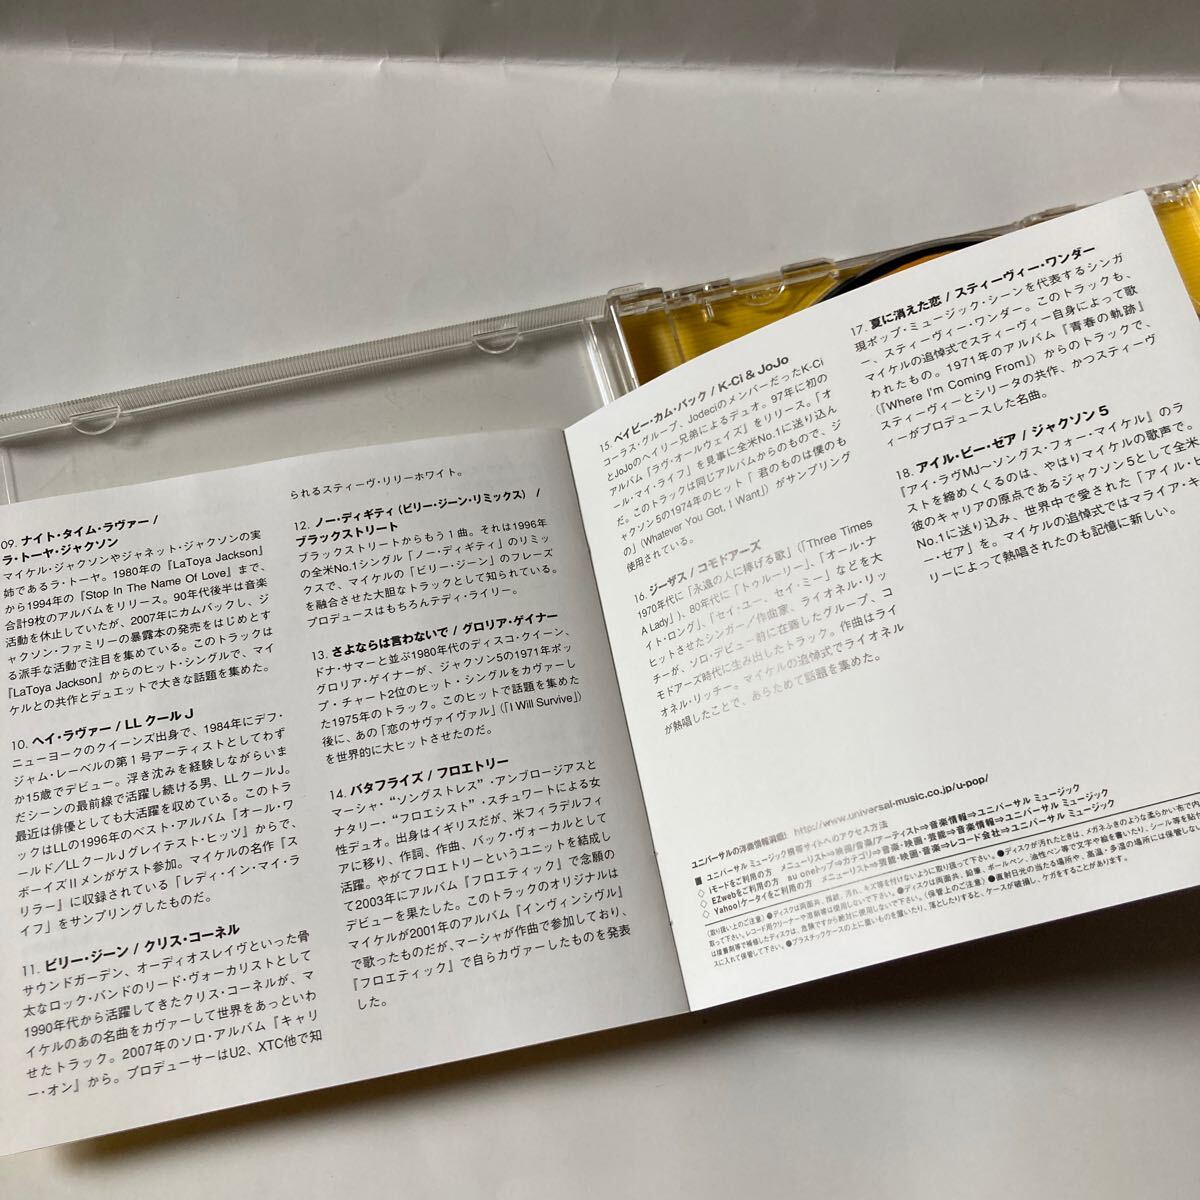 09. ナイト・タイム・ラヴァー /
ラ・トーヤ・ジャクソン
マイケル・ジャクソンやジャネット・ジャクソンの実
姉であるラ・トーヤ。1980年の『LaToya Jackson』
から1994年の『Stop In The Name Of Love』まで、
合計9枚のアルバムをリリース。90年代後半は音楽
活動を休止していたが、2007年にカムバックし、ジ
ャクソン・ファミリーの暴露本の発売をはじめとす
る派手な活動で注目を集めている。このトラックは
『LaToya Jackson』からのヒット・シングルで、マイ
ケルとの共作とデュエットで大きな話題を集めた。
10. ヘイ・ラヴァー / LL クール J
ニューヨークのクイーンズ出身で、1984年にデフ・
ジャム・レーベルの第1号アーティストとしてわず
か15歳でデビュー。浮き沈みを経験しながらいま
だシーンの最前線で活躍し続ける男、LLクールJ。
最近は俳優としても大活躍を収めている。このトラ
ックはLLの1996年のベスト・アルバム『オール・ワ
ールド/LLクールJグレイテスト・ヒッツ』からで、
ボーイズIIメンがゲスト参加。マイケルの名作『ス
リラー』に収録されている「レディ・イン・マイ・ラ
イフ」をサンプリングしたものだ。
11. ビリー・ジーン / クリス・コーネル
サウンドガーデン、オーディオスレイヴといった骨
太なロック・バンドのリード・ヴォーカリストとして
1990年代から活躍してきたクリス・コーネルが、マ
イケルのあの名曲をカヴァーして世界をあっといわ
せたトラック。2007年のソロ・アルバム『キャリ
ー・オン』から。プロデューサーはU2、XTC他で知
られるスティーヴ・リリーホワイト。
12. ノー・ディギティ (ビリー・ジーン・リミックス) /
ブラックストリート
ブラックストリートからもう1曲。それは1996年
の全米No.1シングル「ノー・ディギティ」のリミッ
クスで、マイケルの「ビリー・ジーン」のフレーズ
を融合させた大胆なトラックとして知られている。
プロデュースはもちろんテディ・ライリー。
13. さよならは言わないで / グロリア・ゲイナー
ドナ・サマーと並ぶ1980年代のディスコ・クイーン、
グロリア・ゲイナーが、ジャクソン5の1971年ポッ
プ・チャート2位のヒット・シングルをカヴァーし
た1975年のトラック。このヒットで話題を集めた
後に、あの「恋のサヴァイヴァル」(「I Will Survive」)
を世界的に大ヒットさせたのだ。
14. バタフライズ / フロエトリー
マーシャ・“ソングストレス”・アンブロージアスと
ナタリー・“フロエシスト”・スチュワートによる女
性デュオ。出身はイギリスだが、米フィラデルフィ
アに移り、作詞、作曲、バック・ヴォーカルとして
活躍。やがてフロエトリーというユニットを結成し
て2003年にアルバム『フロエティック』で念願の
デビューを果たした。このトラックのオリジナルは
マイケルが2001年のアルバム『インヴィンシヴル』
で歌ったものだが、マーシャが作曲で参加しており、
『フロエティック』で自らカヴァーしたものを発表
した。
15. ベイビー・カム・バック / K-Ci & JoJo
コーラス・グループ、JodeciのメンバーだったK-Ci
とJoJoのヘイリー兄弟によるデュオ。97年に初の
アルバム『ラヴ・オールウェイズ』をリリース。「オ
ール・マイ・ライフ」を見事に全米No.1に送り込ん
だ。このトラックは同じアルバムからのもので、ジ
ャクソン5の1974年のヒット「君のものは僕のも
の」(Whatever You Got, I Want」) がサンプリング
使用されている。
16. ジーザス / コモドアーズ
1970年代に「永遠の人に捧げる歌」(「Three Times
A Lady」)、80年代に「トゥルーリー」、「オール・ナ
イト・ロング」、「セイ・ユー、セイ・ミー」などを大
ヒットさせたシンガー/作曲家、ライオネル・リッ
チーが、ソロ・デビュー前に在籍したグループ、コ
モドアーズ時代に生み出したトラック。作曲はライ
オネル・リッチー。マイケルの追悼式でライオネル
が熱唱したことで、あらためて話題を集めた。
17. 夏に消えた恋 / スティーヴィー・ワンダー
現ポップ・ミュージック・シーンを代表するシンガ
ー、スティーヴィー・ワンダー。このトラックも、
マイケルの追悼式でスティーヴィー自身によって歌
われたもの。1971年のアルバム『青春の軌跡』
(『Where I'm Coming From』) からのトラックで、
スティーヴィーとシリータの共作、かつスティーヴ
ィーがプロデュースした名曲。
18. アイル・ビー・ゼア / ジャクソン 5
『アイ・ラヴMJ〜ソングス・フォー・マイケル』のラ
ストを締めくくるのは、やはりマイケルの歌声で。
彼のキャリアの原点であるジャクソン5として全米
No.1に送り込み、世界中で愛された「アイル・ビ
ー・ゼア」を。マイケルの追悼式ではマライア・キャ
リーによって熱唱されたのも記憶に新しい。
ユニバーサルの洋楽情報満載! http://www.universal-music.co.jp/u-pop/
■ ユニバーサル ミュージック携帯サイトへのアクセス方法
◇ iモードをご利用の方 メニューリスト⇒映画/音楽/アーティスト⇒音楽情報⇒ユニバーサル ミュージック
◇ EZwebをご利用の方 au oneトップ⇒カテゴリ⇒音楽・映画・芸能⇒音楽情報⇒ユニバーサル ミュージック
◇ Yahoo!ケータイをご利用の方 メニューリスト⇒芸能・映画・音楽⇒レコード会社⇒ユニバーサル ミュージック